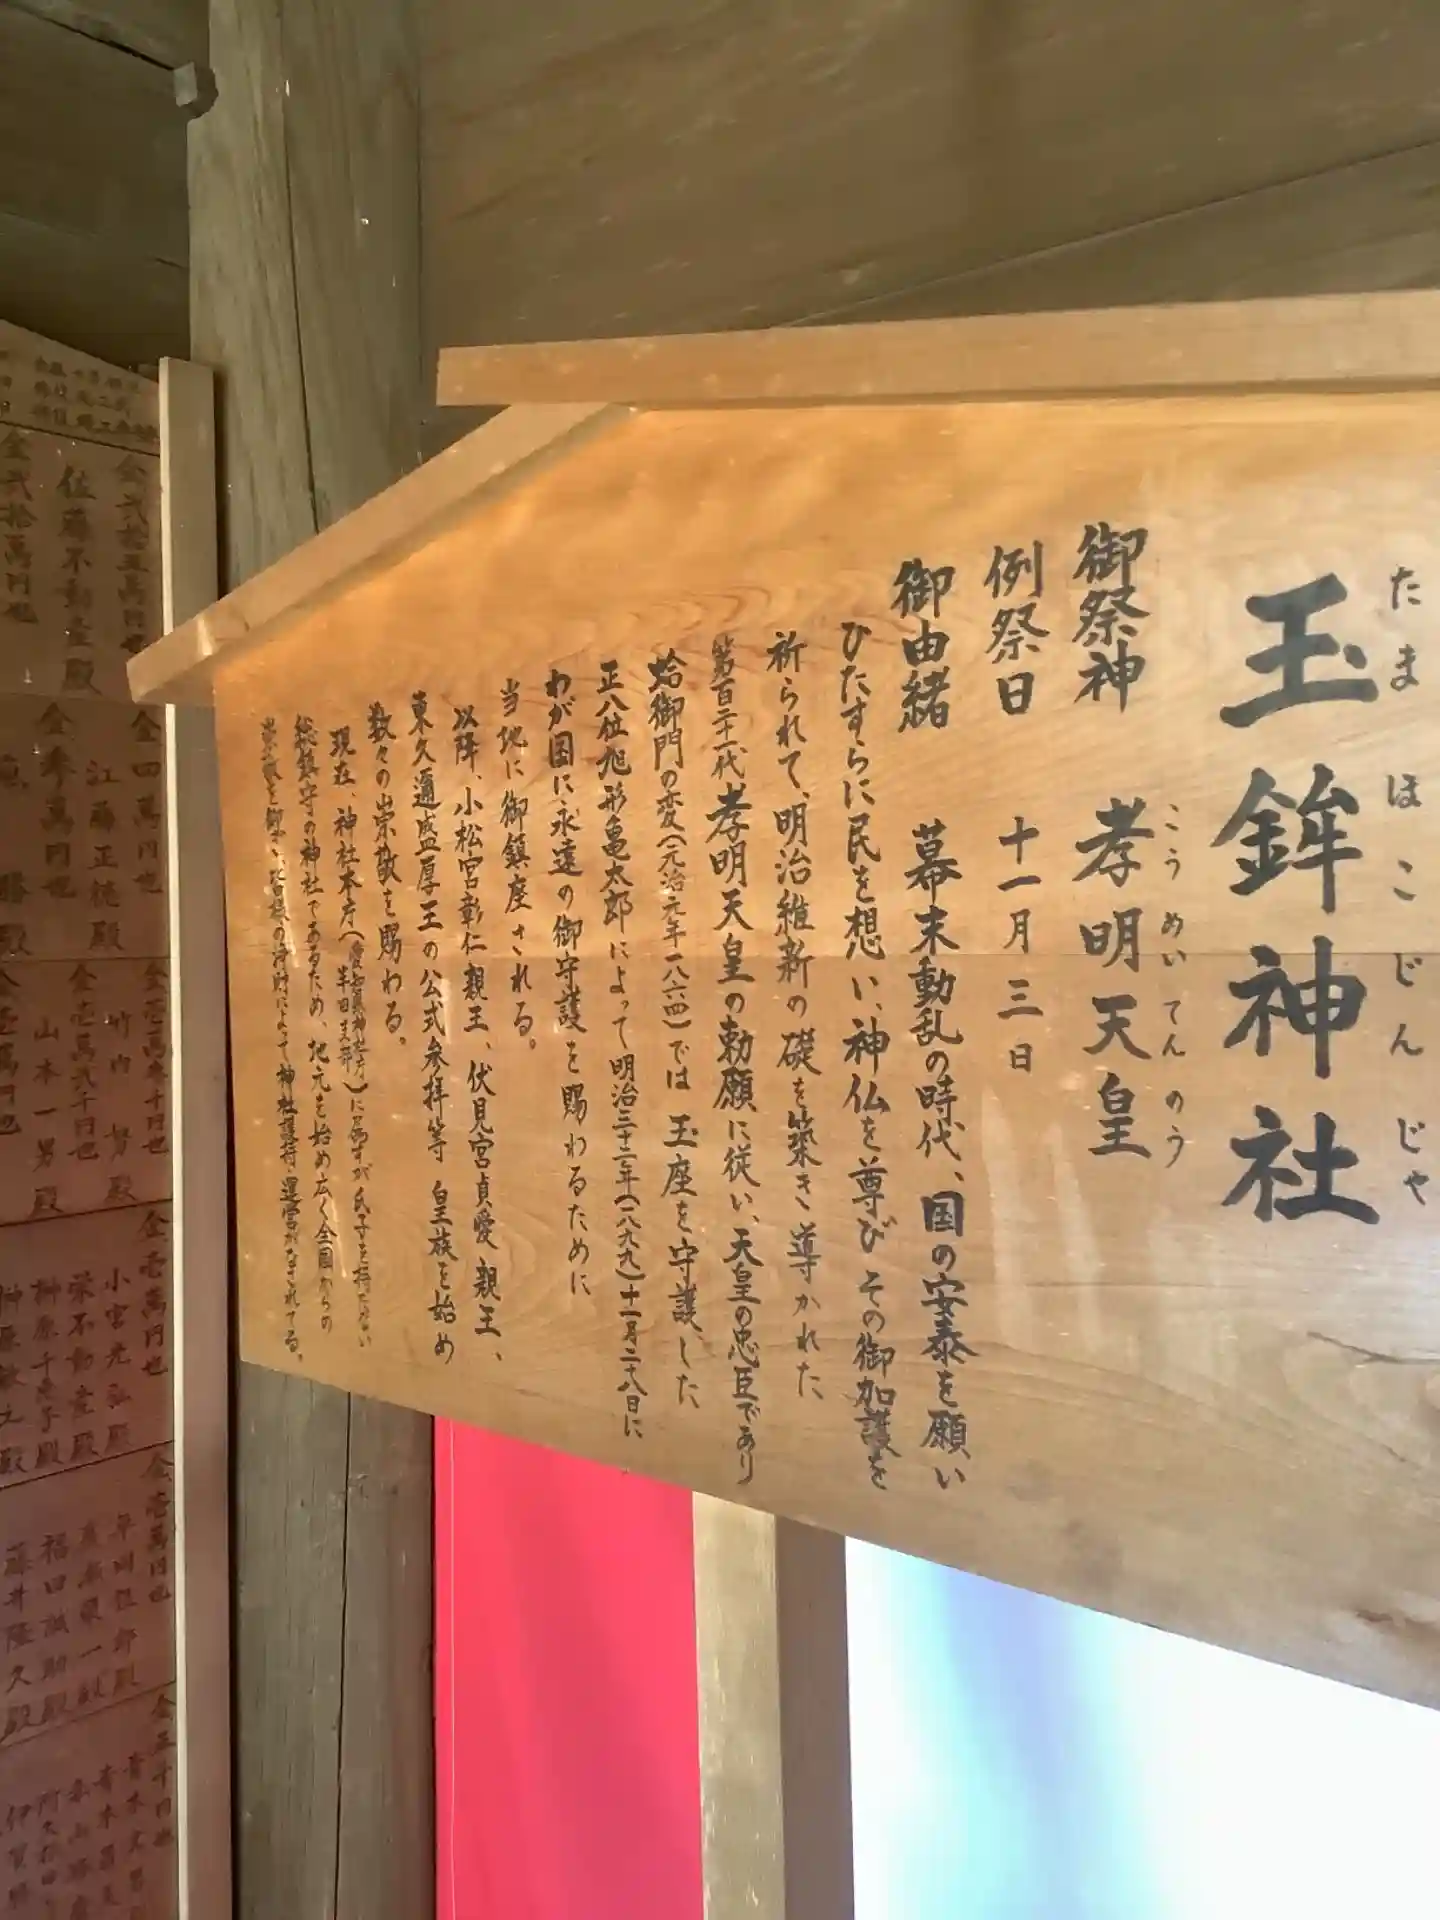 玉鉾神社
たまほこじんじゃ
御祭神 孝明天皇
こうめいてんのう
例祭日 十一月三日
御由緒 幕末動乱の時代、国の安泰を願い
ひたすらに民を想い、神仏を尊び その御加護を
祈られて、明治維新の礎を築き導かれた、
第百二十一代 孝明天皇の勅願に従い、天皇の忠臣であり
蛤御門の変(元治元年一八六四)では 玉座を守護した
正八位旭形亀太郎によって明治三十二年(一八九九)十一月二十八日に
わが国に永遠の御守護を賜わるために
当地に御鎮座される。
以降、小松宮彰仁親王、伏見宮貞愛親王、
東久邇盛厚王の公式参拝等 皇族を始め
数々の崇敬を賜わる。
現在、神社本庁(愛知県神社庁半田支部)に属すが氏子を持たない
総鎮守の神社であるため、地元を始め広く全国からの
によって神社護持・運営がなされてる。
金弐拾五萬円也
佐藤不動産殿
金弐拾萬円也
金四萬円也
江藤正徳殿
金参萬円也
勝殿
竹内努殿
金壱萬弐千円也
山本一男殿
金壱萬円也
金壱萬円也
小宮光弘殿
栄不動産殿
榊原千恵子殿
金壱萬円也
福田誠助殿
藤井隆久殿
金三千円也